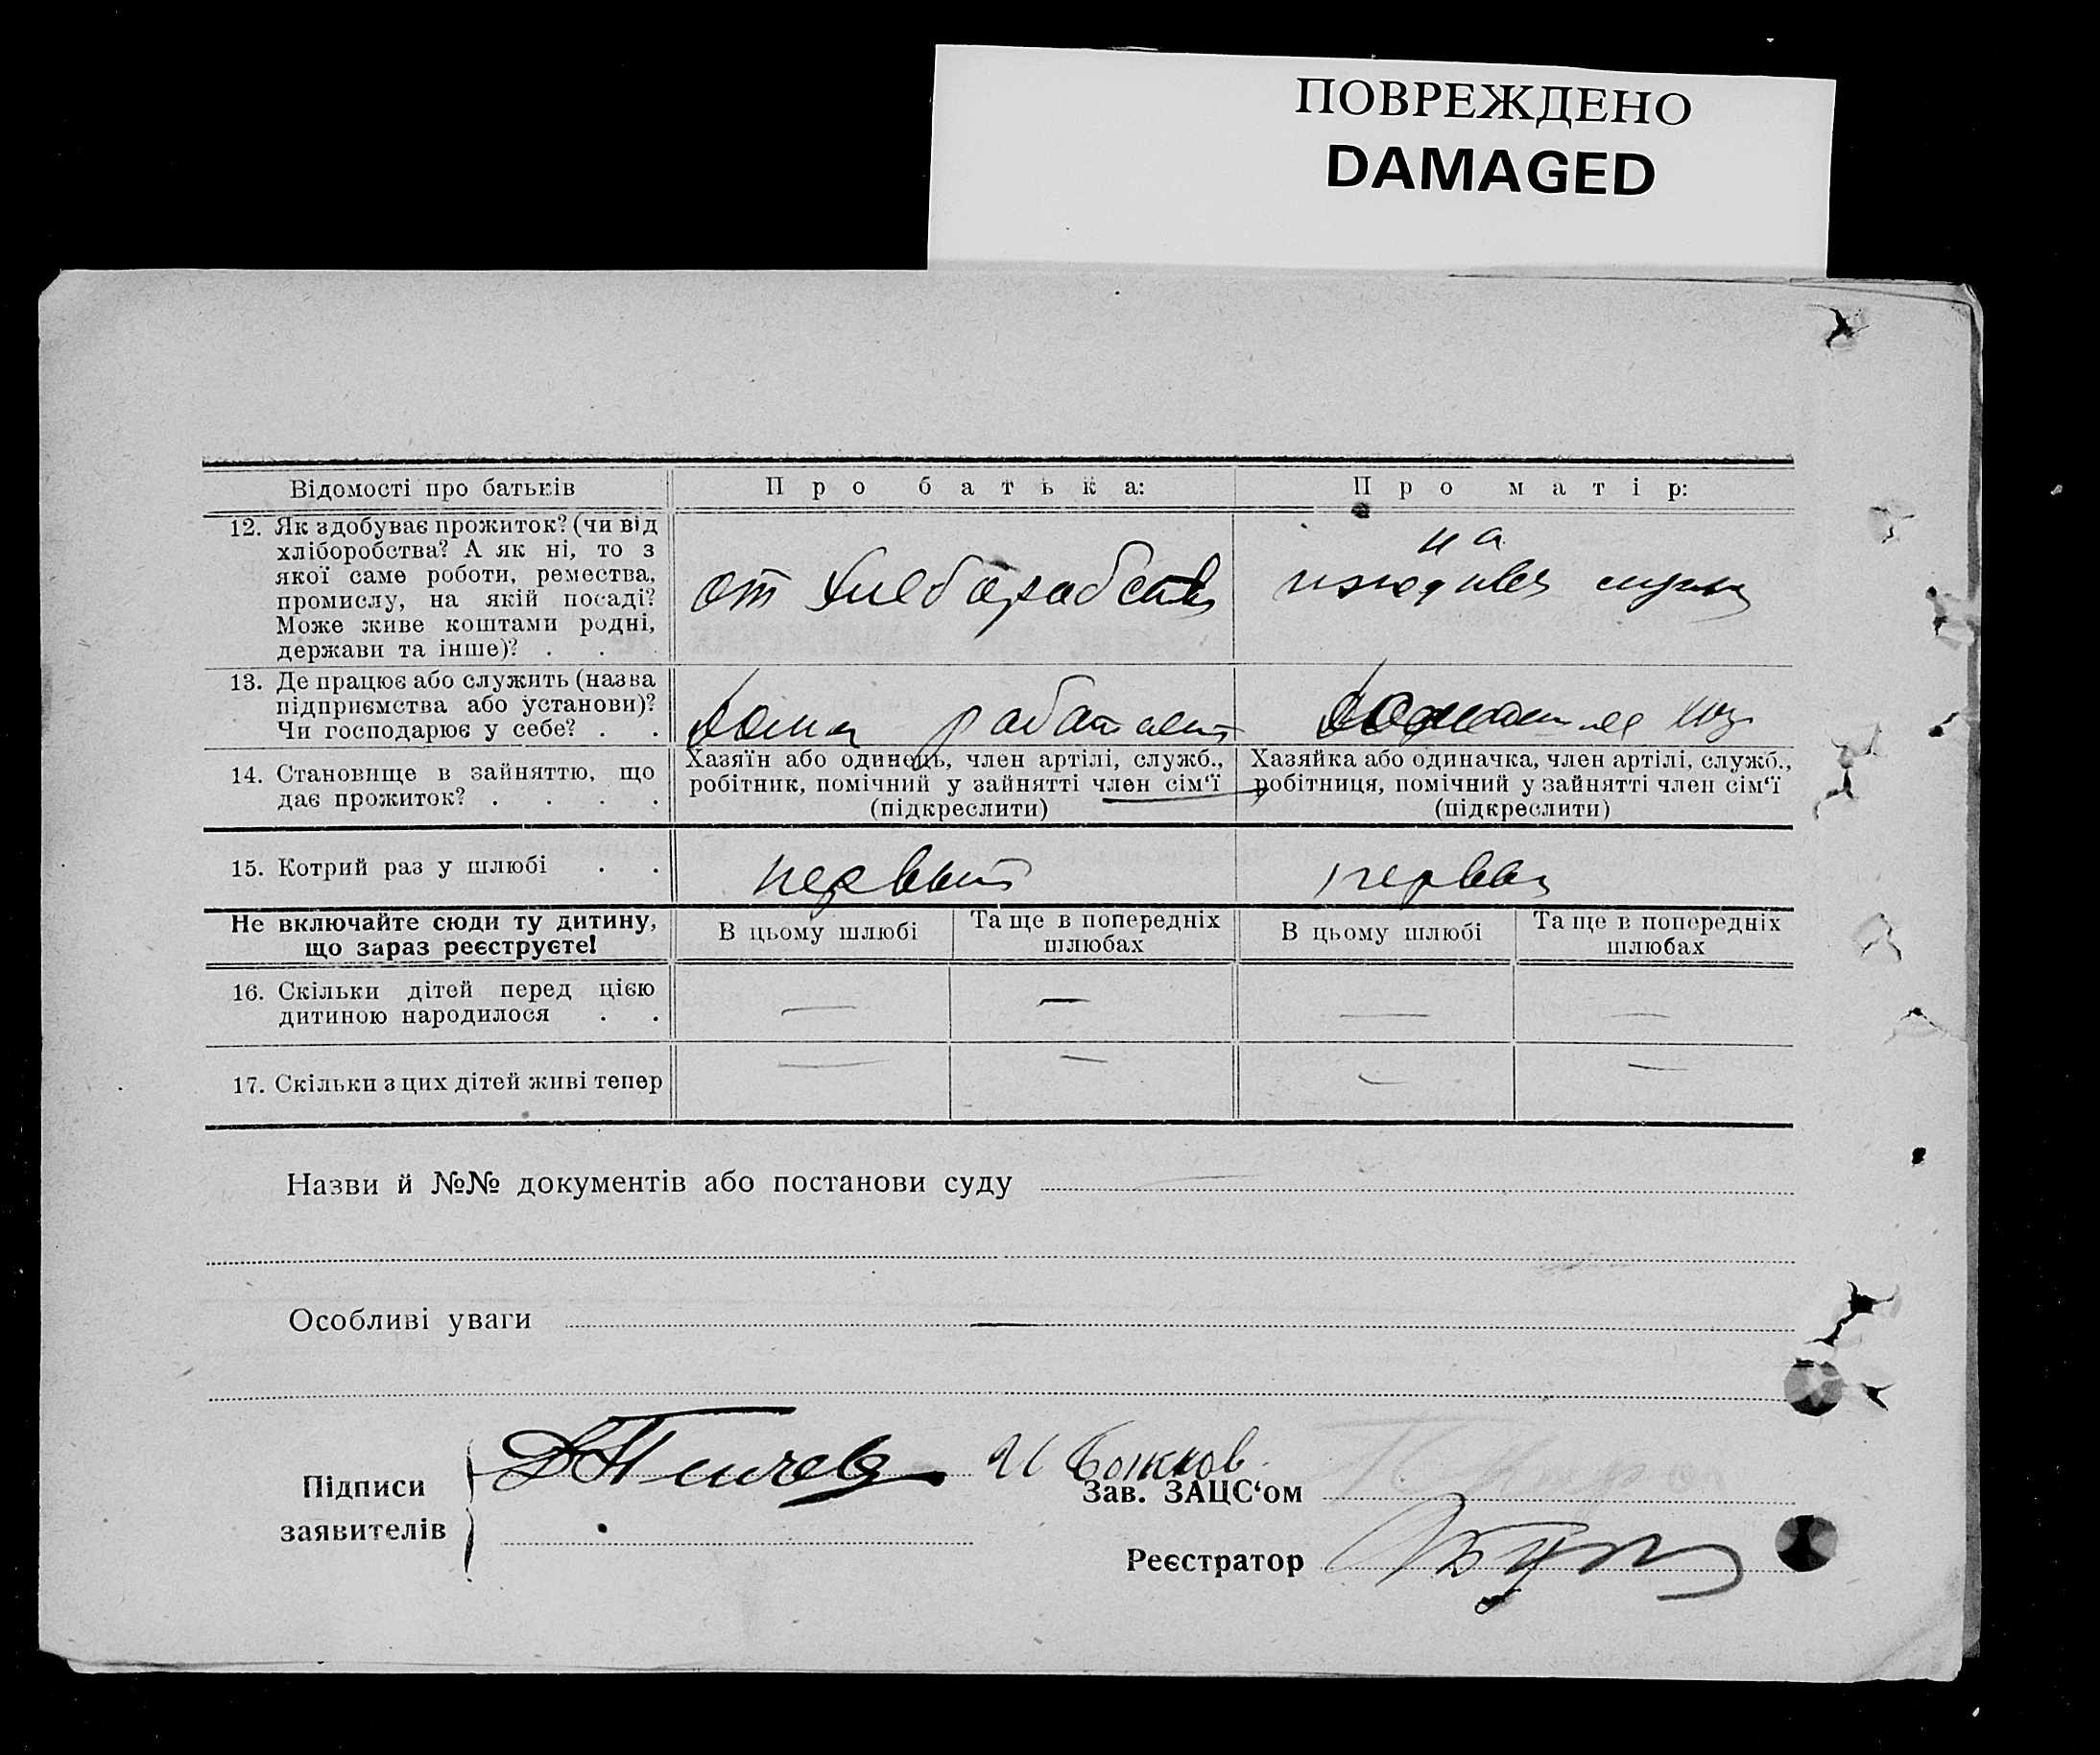 ПОВРЕЖДЕНО
DAMAGED
Відомості про батьків
Про батька:
Про матір:
12. Як здобуває прожиток? (чи від
хліборобства? А як ні, то з
якої саме роботи, ремества,
промислу, на якій посаді?
Може живе коштами родні,
держави та інше)? . .
от хлеборобства
на
иждивен мужа
13. Де працює або служить (назва
підприємства або установи)?
Чи господарює у себе? . .
дома работает
14. Становище в зайняттю, що
дає прожиток? . . . .
Хазяїн або одинець, член артілі, служб.,
робітник, помічний у зайнятті член сім‘ї
(підкреслити)
Хазяйка або одиначка, член артілі, служб.,
робітниця, помічний у зайнятті член сім‘ї
(підкреслити)
15. Котрий раз у шлюбі . .
первый
первый
Не включайте сюди ту дитину,
що зараз реєструєте!
В цьому шлюбі
Та ще в попередніх
шлюбах
В цьому шлюбі
Та ще в попередніх
шлюбах
16. Скільки дітей перед цією
дитиною народилося . .
— — — —
17. Скільки з цих дітей живі тепер
— — — —
Назви й №№ документів або постанови суду
Особливі уваги —
Підписи
заявителів
И Божков
Зав. ЗАЦС‘ом
Реєстратор